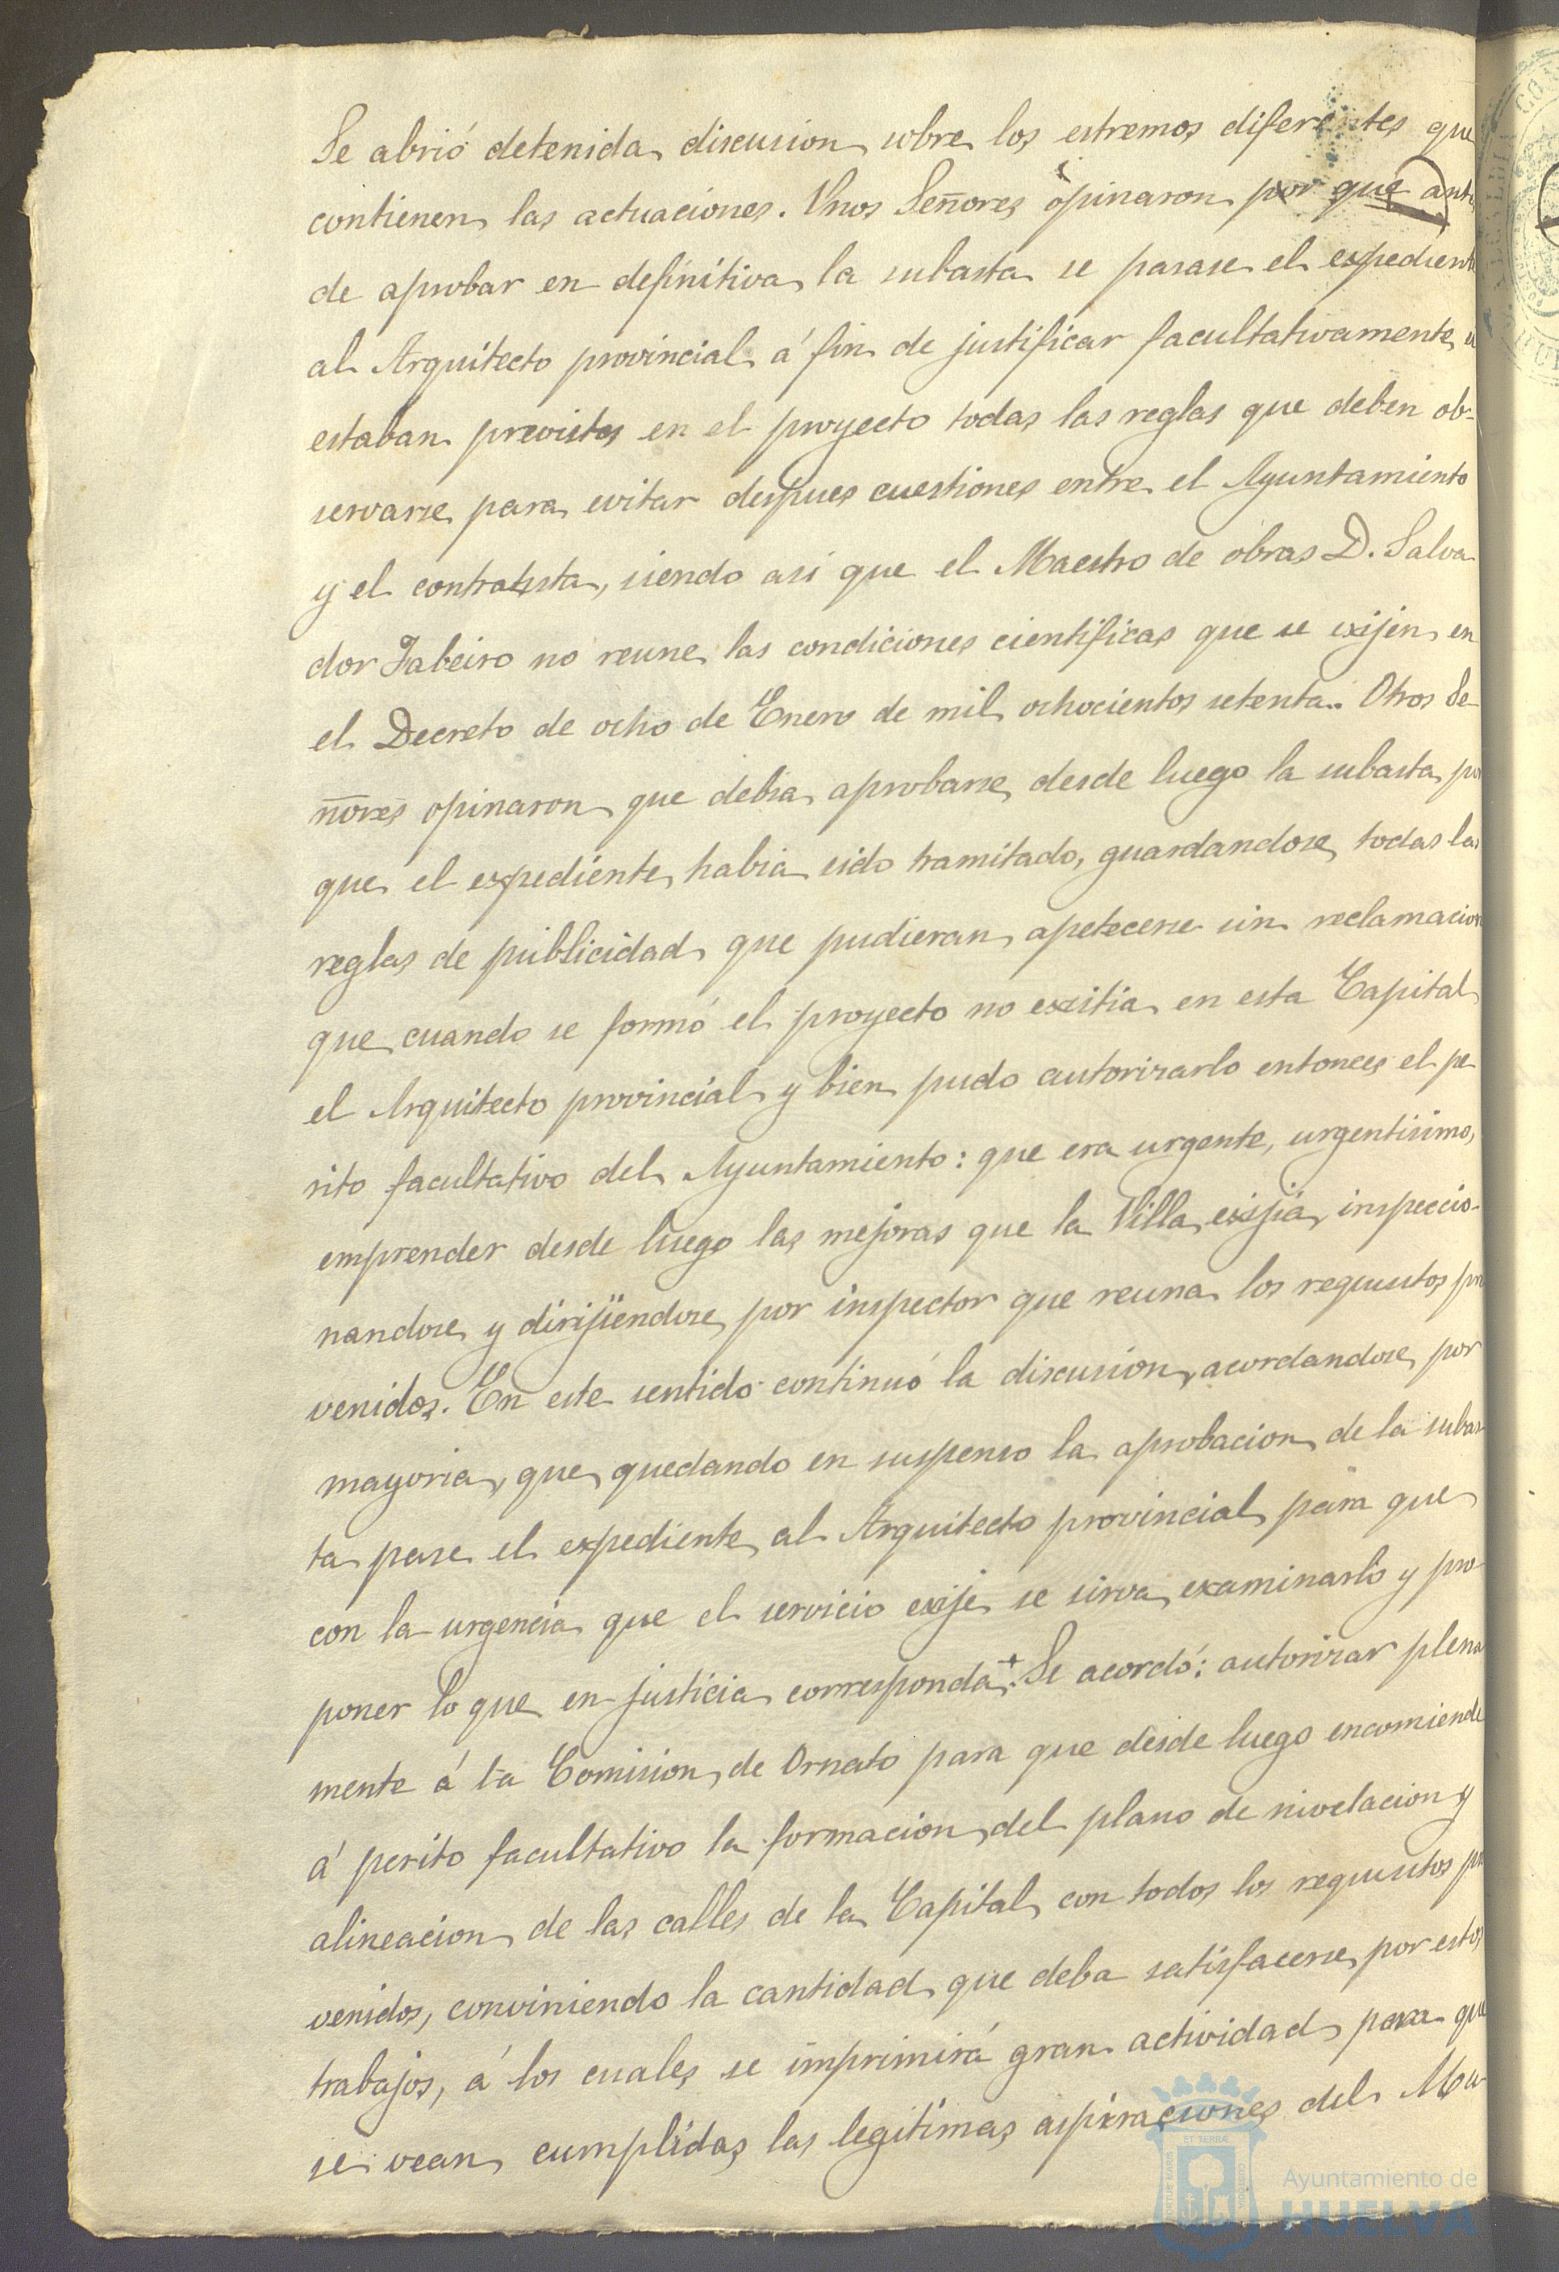 Se abrió detenida discusion sobre los estremos diferentes que
contienen las actuaciones. Unos Señores opinaron por que ant
de aprobar en definitiva la subasta se pasase el espedient
al Arquitecto provincial á fin de justificar facultativamente
estaban previstas en el proyecto todas las reglas que deben ob-
servarse para evitar despues cuestiones entre el Ayuntamiento
y el contratista, siendo asi que el Maestro de obras D. Salva
dor Fabeiro no reune las condiciones cientificas que se exijen en
el Decreto de ocho de Enero de mil ochocientos setenta. Otros Se-
ñores opinaron que debia aprobarse desde luego la subasta po
que el espediente habia sido tramitado, guardandose todas las
reglas de publicidad que pudieran apetecerse sin reclamacion
que cuando se formó el proyecto no exsitia en esta Capital
el Arquitecto provincial y bien pudo autorizarlo entonces el pe
rito facultativo del Ayuntamiento: que era urgente, urgentisimo,
emprender desde luego las mejoras que la Villa exijia, inspeccio-
nandose y dirijiendose por inspector que reuna los requisitos pre
venidos. En este sentido continuó la discusion, acordandose por
mayoria, que quedando en suspenso la aprobacion de la subas
ta pase el expediente al Arquitecto provincial para que
con la urgencia que el servicio exije se sirva examinarlo y pro-
poner lo que en justicia corresponda. + Se acordó: autorizar plena
mente á la Comision de Ornato para que desde luego encomiende
á perito facultativo la formacion del plano de nivelacion y
alineacion de las calles de la Capital con todos los requisitos pre
venidos, conviniendo la cantidad que deba satisfacerse por estos
trabajos, á los cuales se imprimirá gran actividad para que
se vean cumplidas las legitimas aspiraciones del Mu
Ayuntamiento de
HUELVA